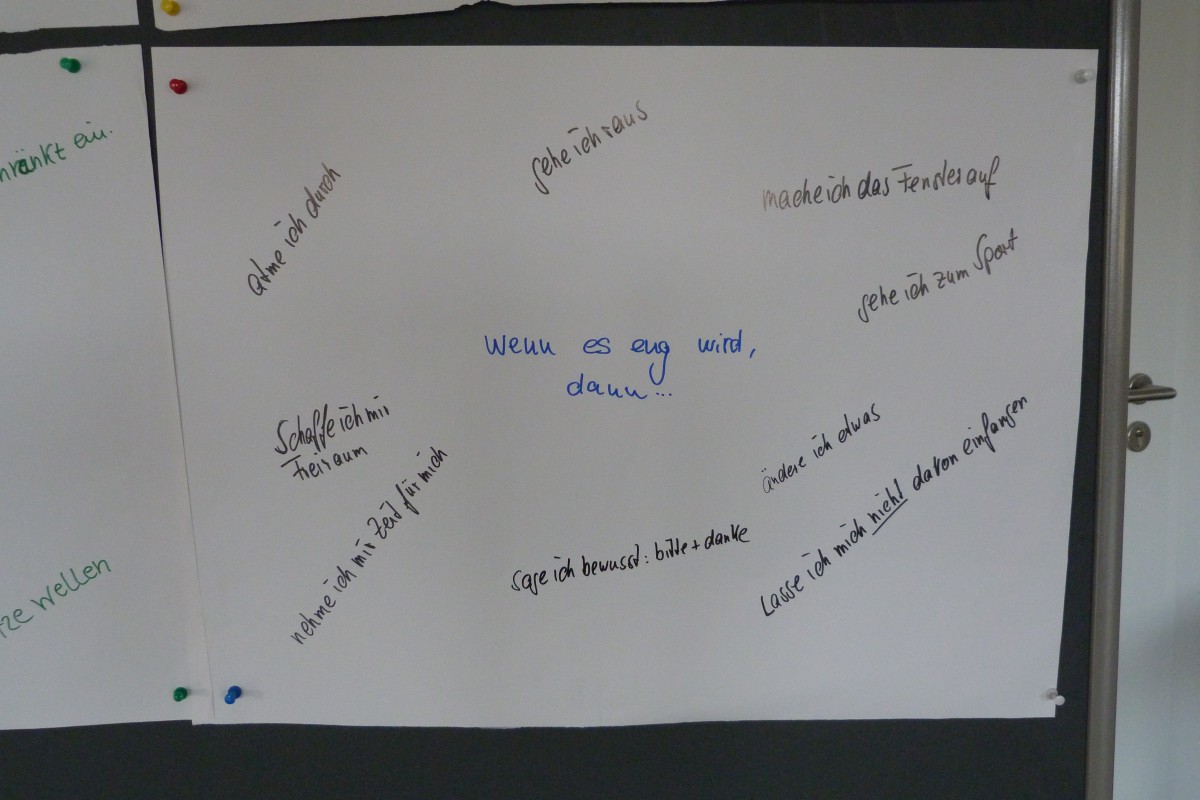 hränkt ein.
ze wellen
gehe ich raus
atme ich durch
mache ich das Fenster auf
gehe ich zum Sport
wenn es eng wird,
dann...
Schaffe ich mir
Freiraum
ändere ich etwas
nehme ich mir Zeit für mich
sage ich bewusst: bitte + danke
Lasse ich mich nicht davon einfangen